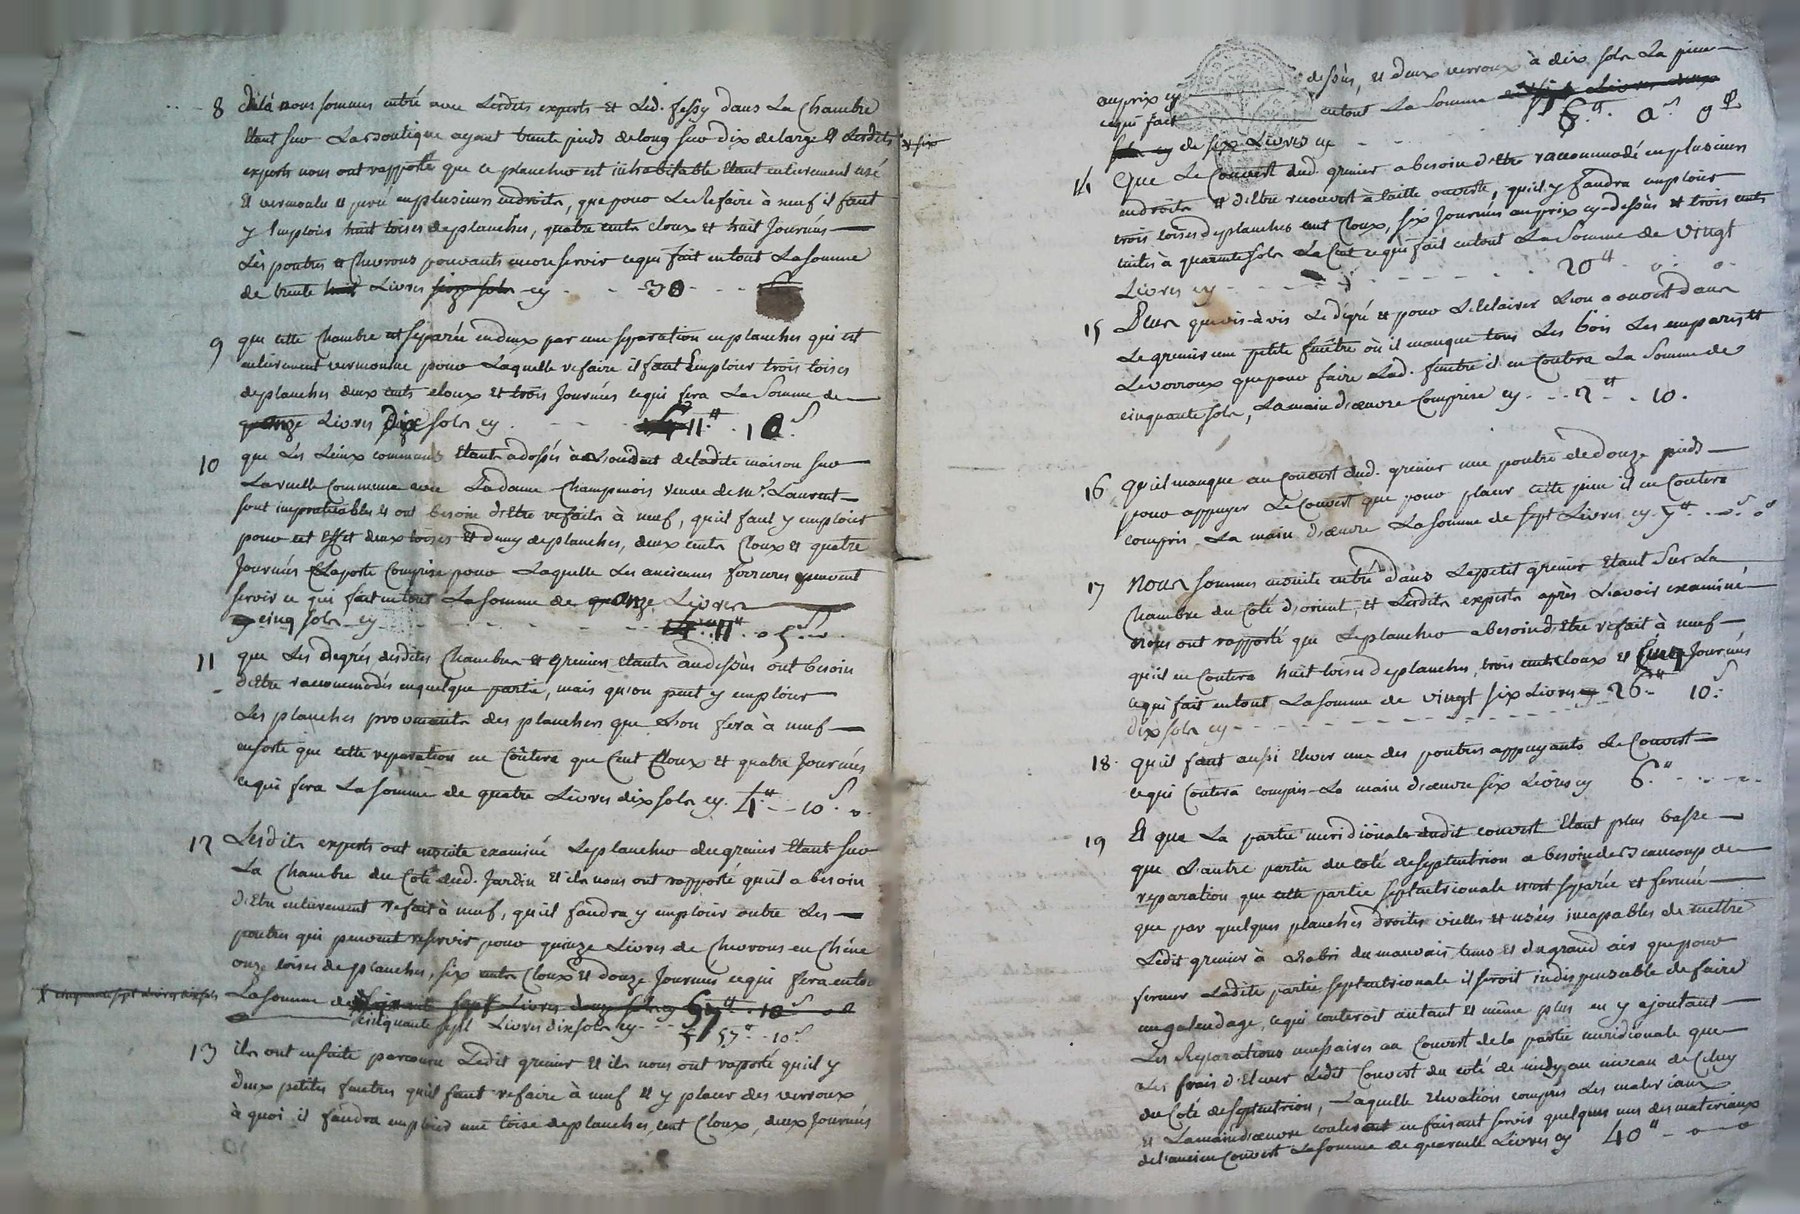 8 delà nous sommes entré avec Lesdits experts et Led. fessy dans La Chambre
Etant sur La boutique ayant trente pieds de long sur dix de large et Lesdits
experts nous ont rapporté que ce plancher est inhabitable Etant entierement usé
et vermoulu et percé en plusieurs endroits, que pour Le Refaire à neuf il faut
y Employer huit toises de planches, quatre cents cloux et huit Journées
Les poutres et Chevrons pouvants encore servir ce qui fait en tout La somme
de trente huit Livres seize sols cy - - 30 - -
9 que cette Chambre est séparée en deux par une separation en planches qui est
entierement vermoulue pour Laquelle refaire il faut Employer trois toises
de planches deux cents cloux et trois Journées ce qui fera La Somme de
onze Livres dix sols cy - - - 11# 10 s
10 que Les Lieux communs Etants adossés à de ladite maison sur
La ruelle Commune avec La dame Champenois veuve de mr. Laurent
sont impraticables et ont besoin d'Etre refaits à neuf, qu'il faut y employer
pour cet Effet deux toises et demy de planches, deux cents Cloux et quatre
Journées La porte Comprise pour Laquelle Les anciennes ferrures peuvent
servir ce qui fait en tout La somme de onze Livres
cinq sols cy - - - 11# 5 s
11 que Les degrés desdites Chambres et greniers Etants au dessus ont besoin
d'Etre raccommodés en quelque partie, mais qu'on peut y employer
Les planches provenants des planchers que L'on fera à neuf
ensorte que cette reparation ne Coûtera que Cent Cloux et quatre Journées
ce qui fera La somme de quatre Livres dix sols cy. 4.# - 10 s. 0.
12 Lesdits experts ont ensuite examiné Le plancher du grenier Etant sur
La Chambre du Coté dud. Jardin et ils nous ont rapporté qu'il a besoin
d'Etre entierement refait à neuf, qu'il faudra y employer outre Les
poutres qui peuvent reservir pour quinze Livres de Chevrons en Chêne
onze toises de planches, six cents Cloux et douze Journées ce qui fera en tout
x cinquante sept Livres dix sols
La somme de soixante sept Livres douze sols cy 67# 10 s
cinquante sept Livres dix sols cy - - 57# 10 s
13 ils ont ensuite parcouru Ledit grenier et ils nous ont raporté qu'il y
deux petites fenetres qu'il faut refaire à neuf et y placer des verroux
à quoi il faudra employer une toise de planches, cent Cloux, deux Journées
au prix cy dessus, et deux verroux à dix sols La piece
ce qui fait en tout La somme
6# 0 s 0 d
cy de six Livres cy - -
14 Que Le Couvert dud. grenier a besoin d'Etre raccommodé en plusieurs
endroits et d'Etre recouvert à taille ouverte, qu'il y faudra employer
trois toises de planches cent Cloux, six Journées au prix cy-dessus et trois cents
tuiles à quarante sols Le Cent ce qui fait en tout La Somme de vingt
Livres cy - - - 20# 0. 0.
15 Plus que vis-à-vis Le degré et pour L'eclairer L'on a ouvert dans
Le grenier une petite fenêtre où il manque tous Les bois Les emparts et
Le verroux que pour faire Lad. fenetre il en Coutera La Somme de
cinquante sols, La main d'œuvre Comprise cy - - 2# - 10.
16 qu'il manque au Couvert dud. grenier une poutre de douze pieds
pour appuyer Le Couvert que pour placer cette piece il en Coutera
compris La main d'œuvre La somme de sept Livres cy. 7# - 0 s. 0 d
17 Nous sommes ensuite entré dans Le petit grenier Etant Sur La
Chambre du Coté d'orient, et Lesdits experts après L'avoir examiné
nous ont rapporté que Le plancher a besoin d'Etre refait à neuf
qu'il en Coutera huit toises de planches, trois cents Cloux et Cinq Journées
ce qui fait en tout La somme de vingt six Livres 26# 10 s.
dix sols cy - - -
18. qu'il faut aussi Elever une des poutres appuyants Le Couvert
ce qui Coutera compris La main d'œuvre six Livres cy 6.# - - -
19 Et que La partie meridionale dudit couvert Etant plus basse
que L'autre partie du coté de Septentrion a besoin de Beaucoup de
reparation que cette partie septentrionale n'est separée et fermée
que par quelques planches droites vielles et usées incapables de mettre
Ledit grenier à L'abri du mauvais tems et du grand air que pour
fermer Ladite partie septentrionale il seroit indispensable de faire
un galendage, ce qui couteroit autant et même plus en y ajoutant
Les Reparations necessaires au Couvert de la partie meridionale que
Les frais d'Elever Ledit Couvert du coté de midy au niveau de Celuy
du Coté de Septentrion, Laquelle Elevation compris Les materiaux
et La main d'œuvre coutera en faisant servir quelques uns des materiaux
de L'ancien Couvert La somme de quarante Livres cy 40# - 0 - 0